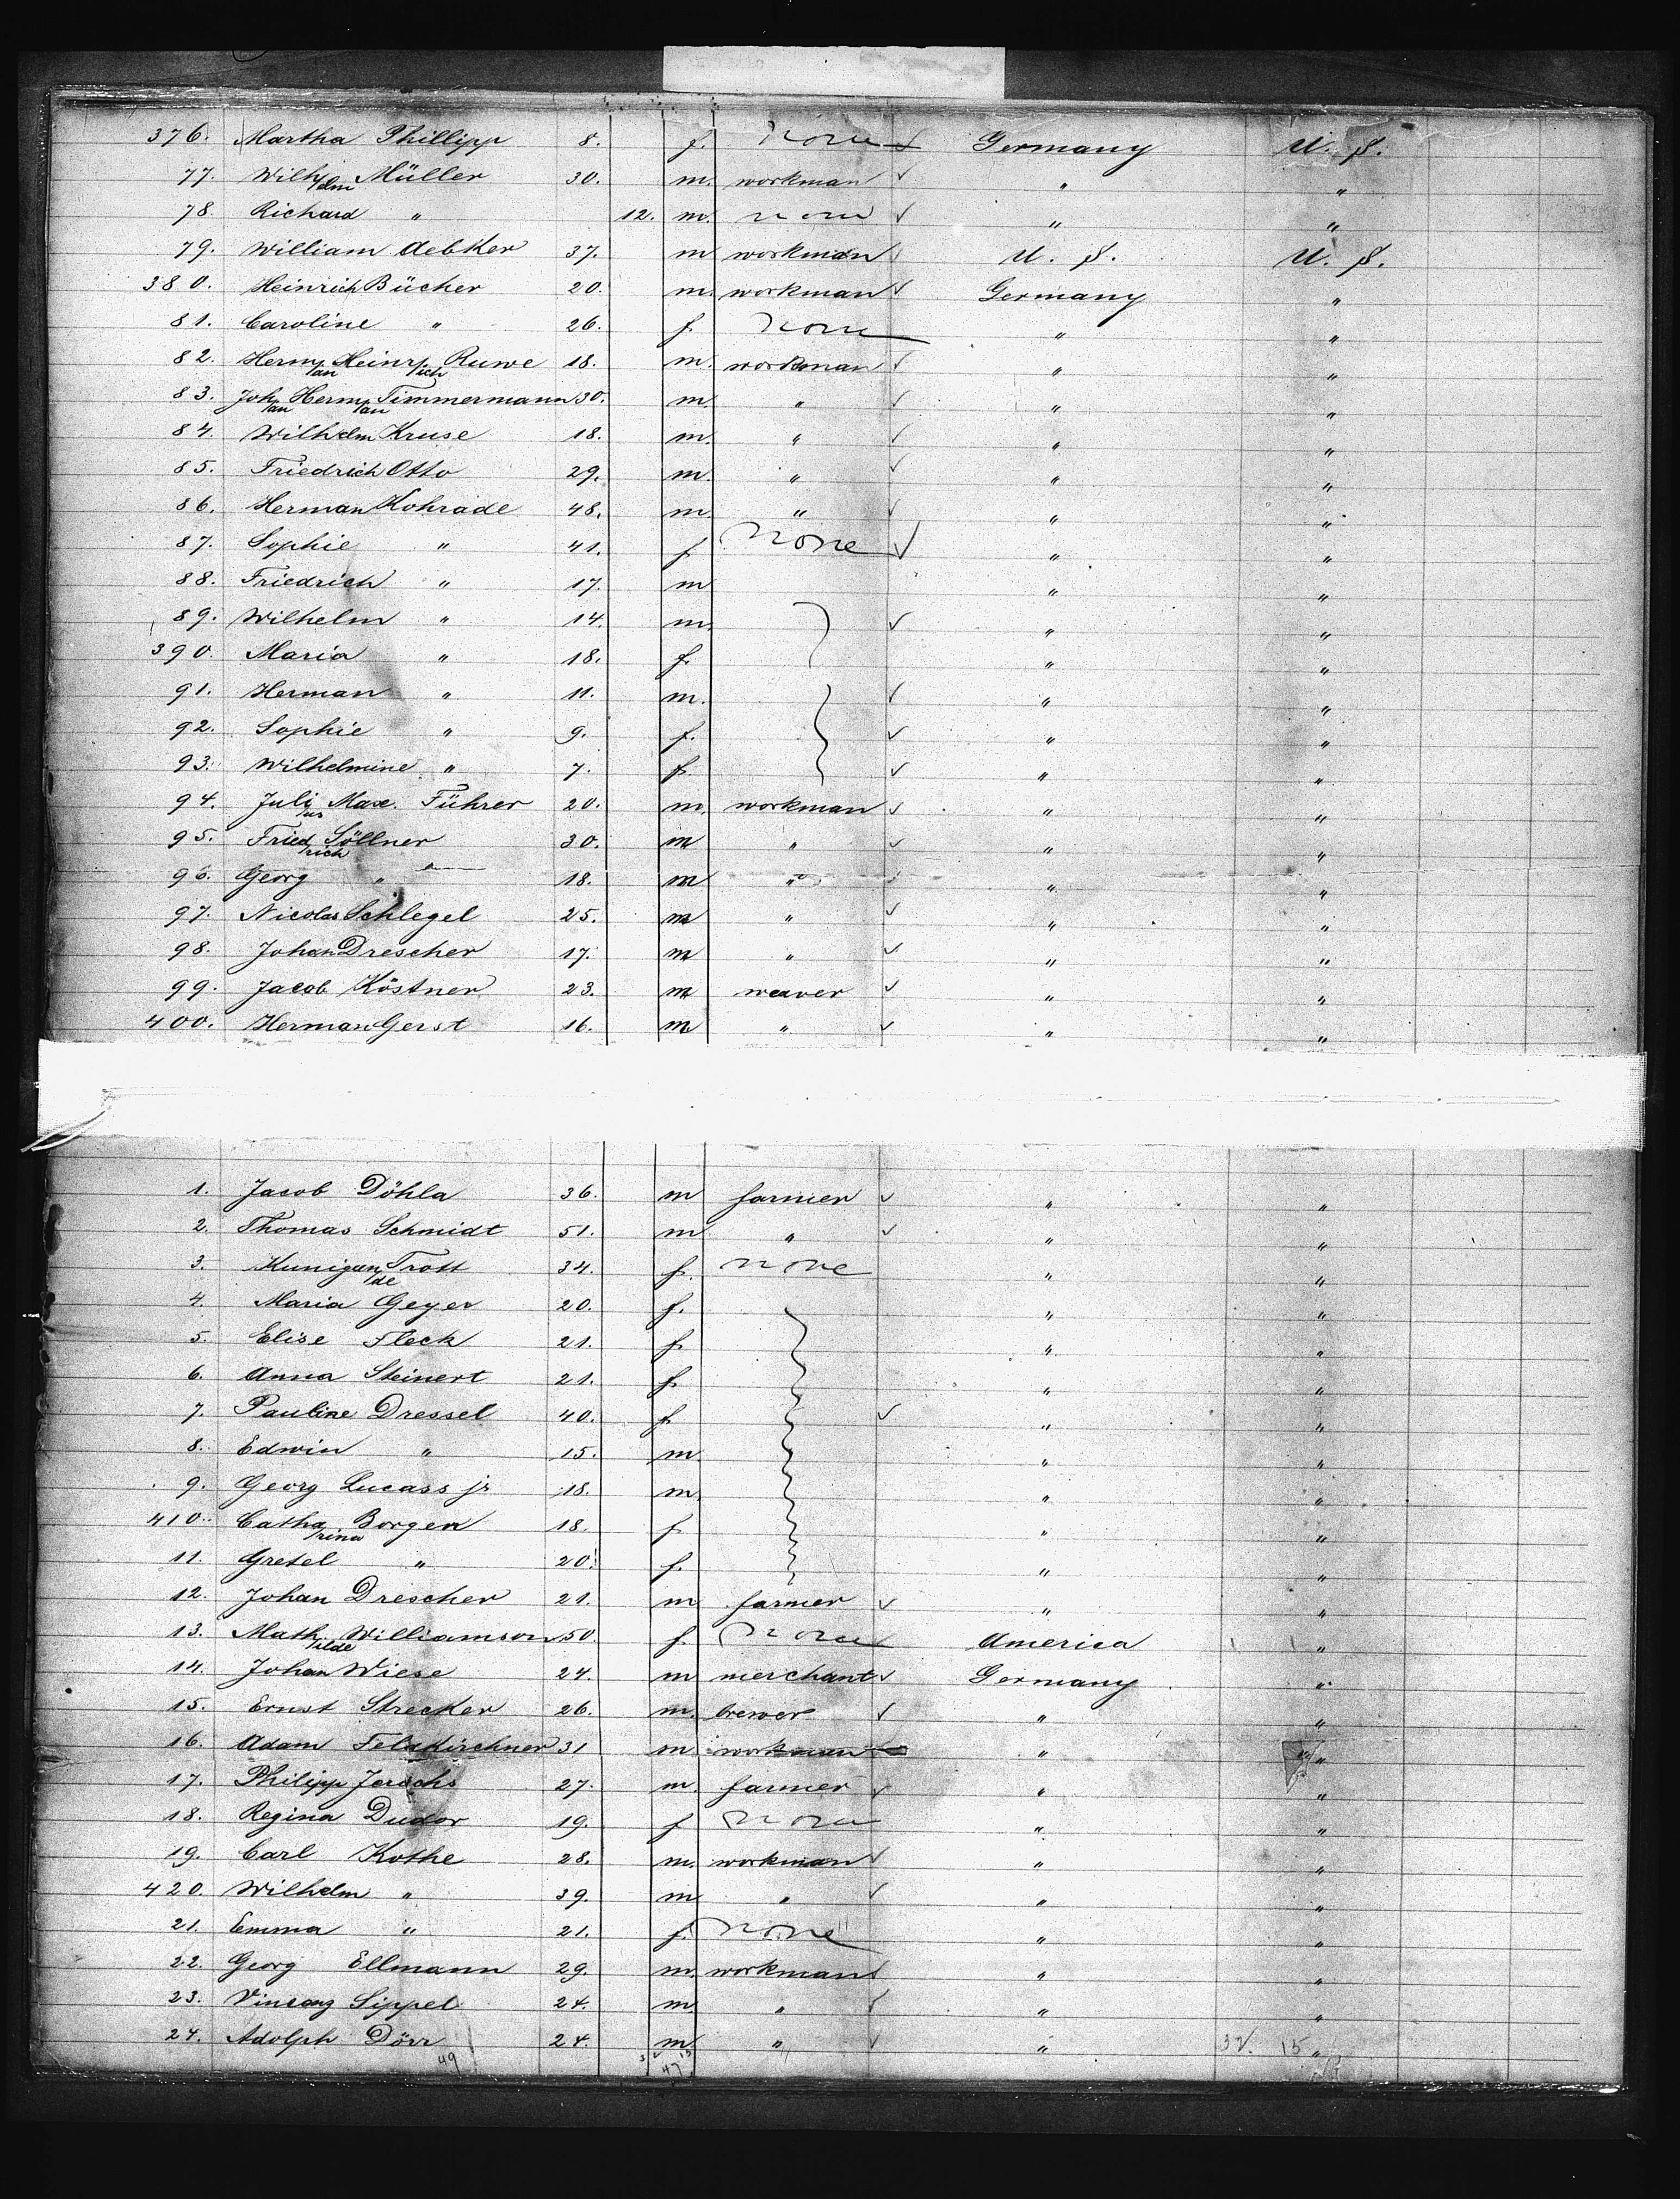 376. Martha Phillipp 8. f. none Germany U. S.
77. Wilhelm Müller 30. m. workman " "
78. Richard " 12. m. none " "
79. William Aebker 37. m workman U. S. U. S.
380. Heinrich Bücher 20. m. workman Germany "
81. Caroline " 26. f. none " "
82. Herman Heinrich Ruwe 18. m. workman " "
83. Johan Herman Timmermann 30. m. " " "
84. Wilhelm Kruse 18. m. " " "
85. Friedrich Otto 29. m. " " "
86. Herman Kohrade 48. m. " " "
87. Sophie " 41. f none " "
88. Friedrich " 17. m " "
89. Wilhelm " 14. m. " "
390. Maria " 18. f. " "
91. Herman " 11. m. " "
92. Sophie " 9. f. " "
93. Wilhelmine " 7. f. " "
94. Julius Max. Führer 20. m. workman " "
95. Friedrich Söllner 30. m " " "
96. Georg " 18. m " " "
97. Nicolas Schlegel 25. m " " "
98. Johan Drescher 17. m " " "
99. Jacob Köstner 23. m weaver " "
400. Herman Gerst 16. m " " "
1. Jacob Döhla 36. m farmer " "
2. Thomas Schmidt 51. m " " "
3. Kunigunde Trott 34. f. none " "
4. Maria Geyer 20. f. " "
5. Elise Fleck 21. f. " "
6. Anna Steinert 21. f. " "
7. Pauline Dressel 40. f. " "
8. Edwin " 15. m. " "
9. Georg Lucass jr 18. m. " "
410. Catharina Borger 18. f. " "
11. Gretel " 20. f. " "
12. Johan Drescher 21. m farmer " "
13. Mathilde Williamson 50. f. none America "
14. Johan Wiese 24. m merchant Germany "
15. Ernst Strecker 26. m. brewer " "
16. Adam Feldkirchner 31 m workman " "
17. Philipp 27. m. farmer " "
18. Regina Dudor 19. f none " "
19. Carl Kothe 28. m. workman " "
420. Wilhelm " 39. m " " "
21. Emma " 21. f. none " "
22. Georg Ellmann 29. m. workman " "
23. Vincenz Sippel 24. m. " " "
24. Adolph Dörr 24. m. " " 32. 15 "
49 47